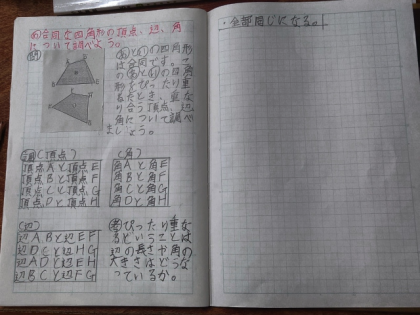 め合同な四角形の頂点、辺、角
について調べよう。
問
あといの四角形
は合同です。こ
のあといの四角
形をぴったり重
ねたとき、重な
り合う頂点、辺
角について調べ
ましょう。
(頂点)
頂点Aと頂点E
頂点Bと頂点F
頂点Cと頂点G
頂点Dと頂点H
(角)
角Aと角E
角Bと角F
角Cと角G
角Dと角H
(辺)
辺ABと辺EF
辺DCと辺HG
辺ADと辺EH
辺BCと辺FG
考ぴったり重な
るということは
辺の長さや角の
大きさはどうな
っているか。
・全部同じになる。